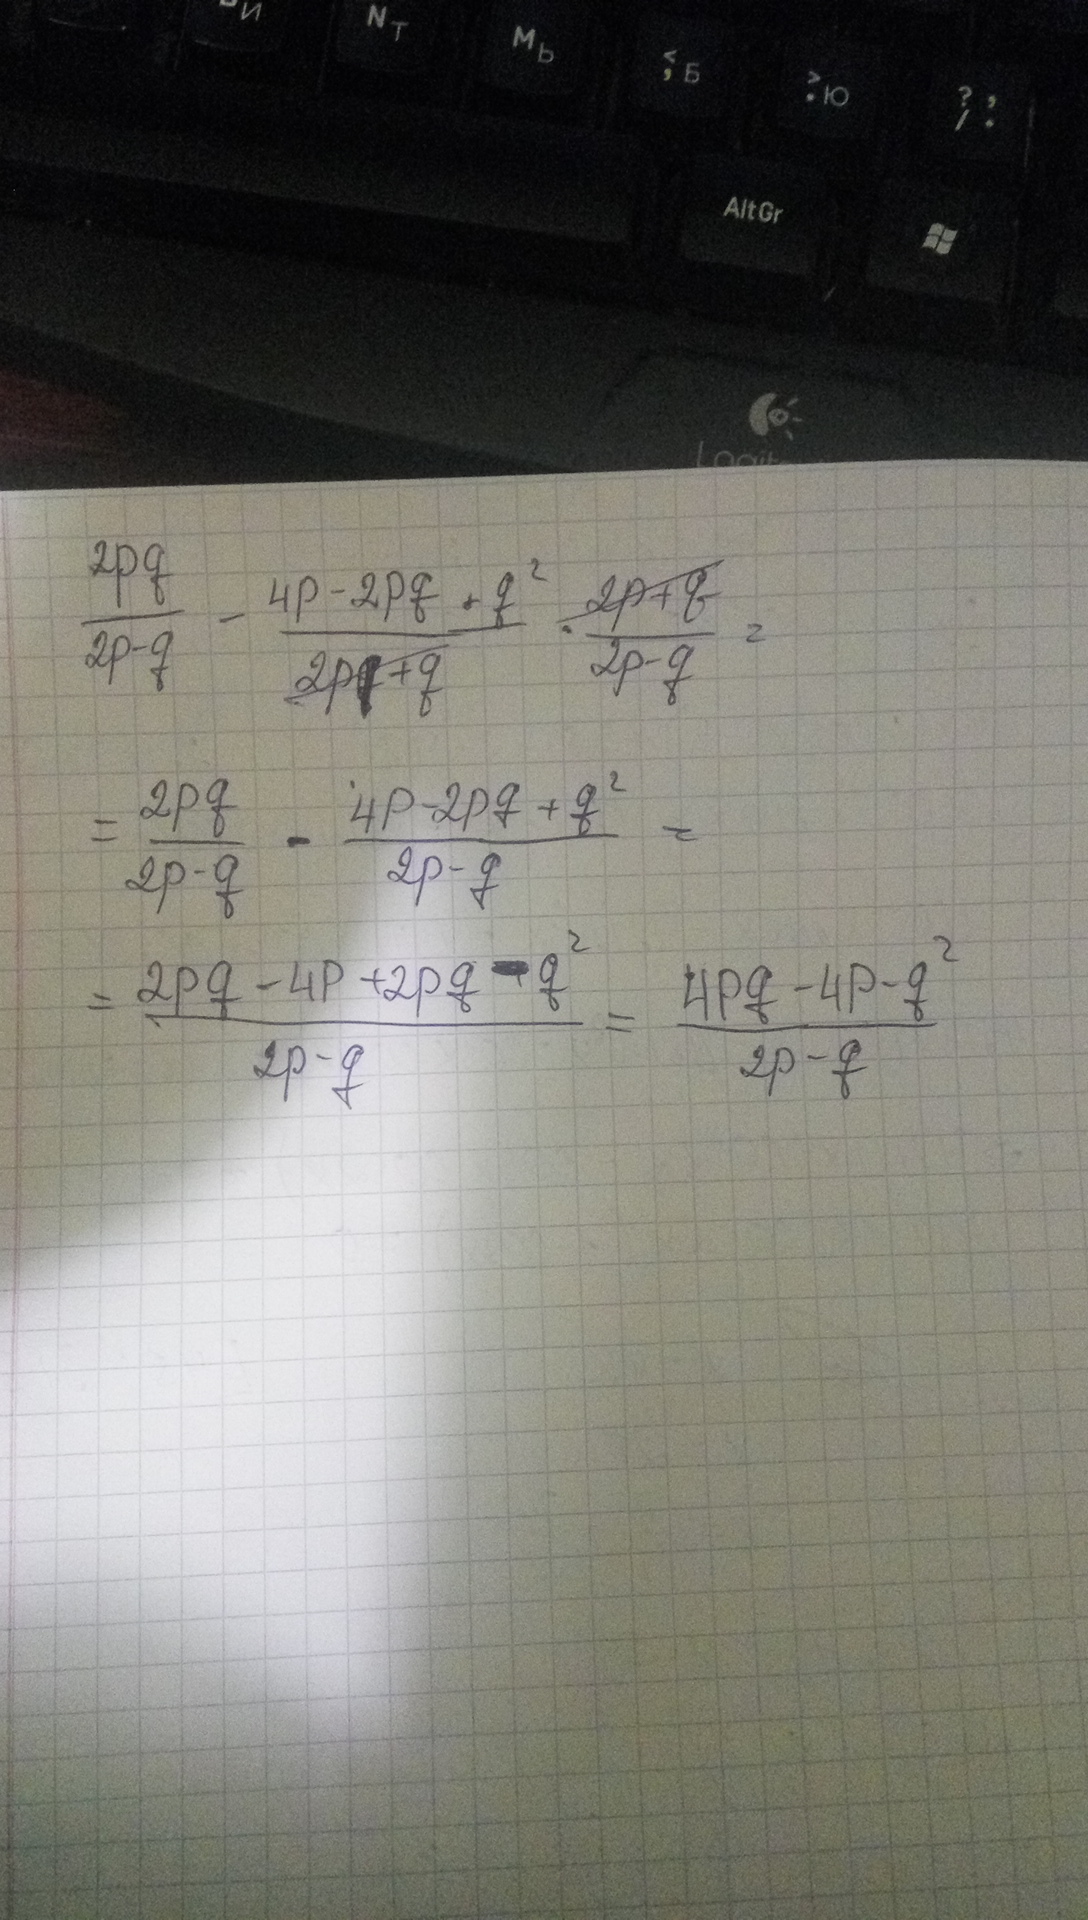 И
N T
M Ь
< , Б
> . Ю
? / , .
AltGr
2pq/2p-q - 4p-2pq+q²/2p+q · 2p+q/2p-q =
= 2pq/2p-q - 4p-2pq+q²/2p-q =
= 2pq-4p+2pq-q²/2p-q = 4pq-4p-q²/2p-q